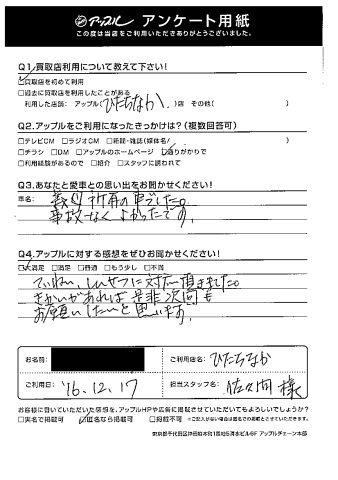 アップル アンケート用紙
この度は当店をご利用いただきありがとうございました。
Q1.買取店利用について教えて下さい!
☑買取店を初めて利用
□過去に買取店を利用したことがある
利用した店舗: アップル( ひたちなか )店 その他( )
Q2.アップルをご利用になったきっかけは?(複数回答可)
□テレビCM □ラジオCM □新聞・雑誌(媒体名/ )
□チラシ □DM □アップルのホームページ ☑通りがかりで
□利用経験があるので □紹介 □スタッフに誘われて
Q3.あなたと愛車との思い出をお聞かせください!
車名:
義母 所有の車でした。
事故なくよかったです。
Q4.アップルに対する感想をぜひお聞かせください!
☑大満足 □満足 □普通 □もう少し □不満
ていねい、しんせつに対応頂きました。
きかいがあれば是非次回も
お願いしたいと思います。
お名前
ご利用店名: ひたちなか
ご利用日: '16.12.17
担当スタッフ名: 佐々間 様
お客様に書いていただいた感想を、アップルHPや広告に掲載させていただいてもよろしいでしょうか?
□実名で掲載可 ☑匿名なら掲載可 □掲載不可 ※ご記入がない場合は匿名での掲載とさせていただきます。
東京都千代田区神田錦本町1番地5清水ビル6F アップルチェーン本部